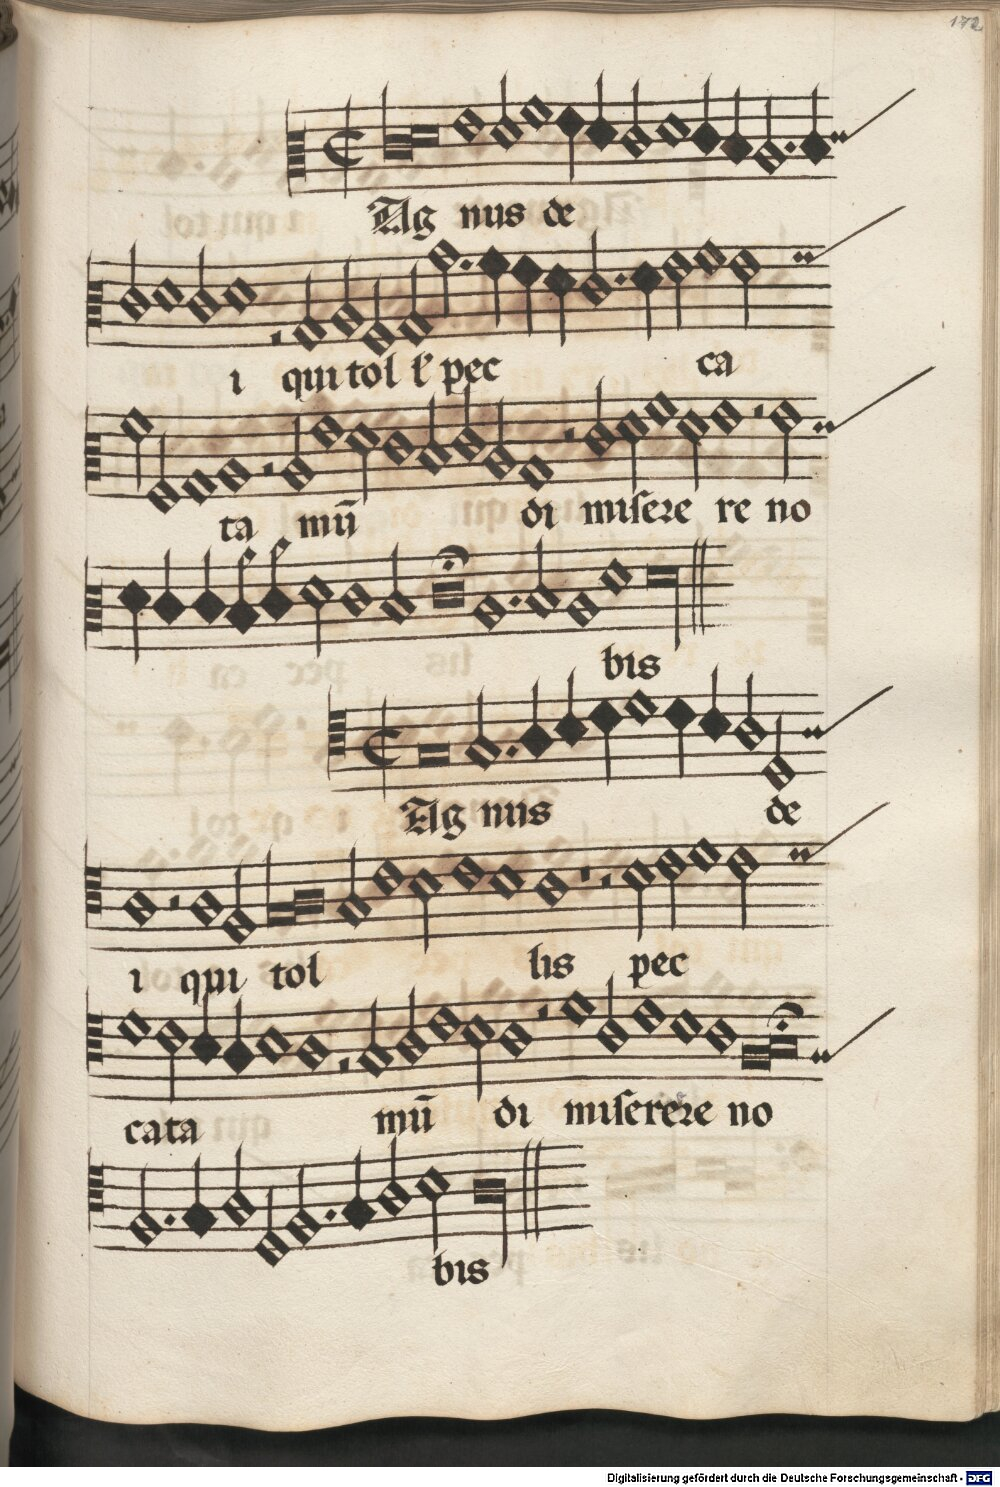 172
Ag nus de
i qui tol l' pec ca
ta mū di miserere no
bis
Ag nus de
i qui tol lis pec
cata mū di miserere no
bis
Digitalisierung gefördert durch die Deutsche Forschungsgemeinschaft - DFG